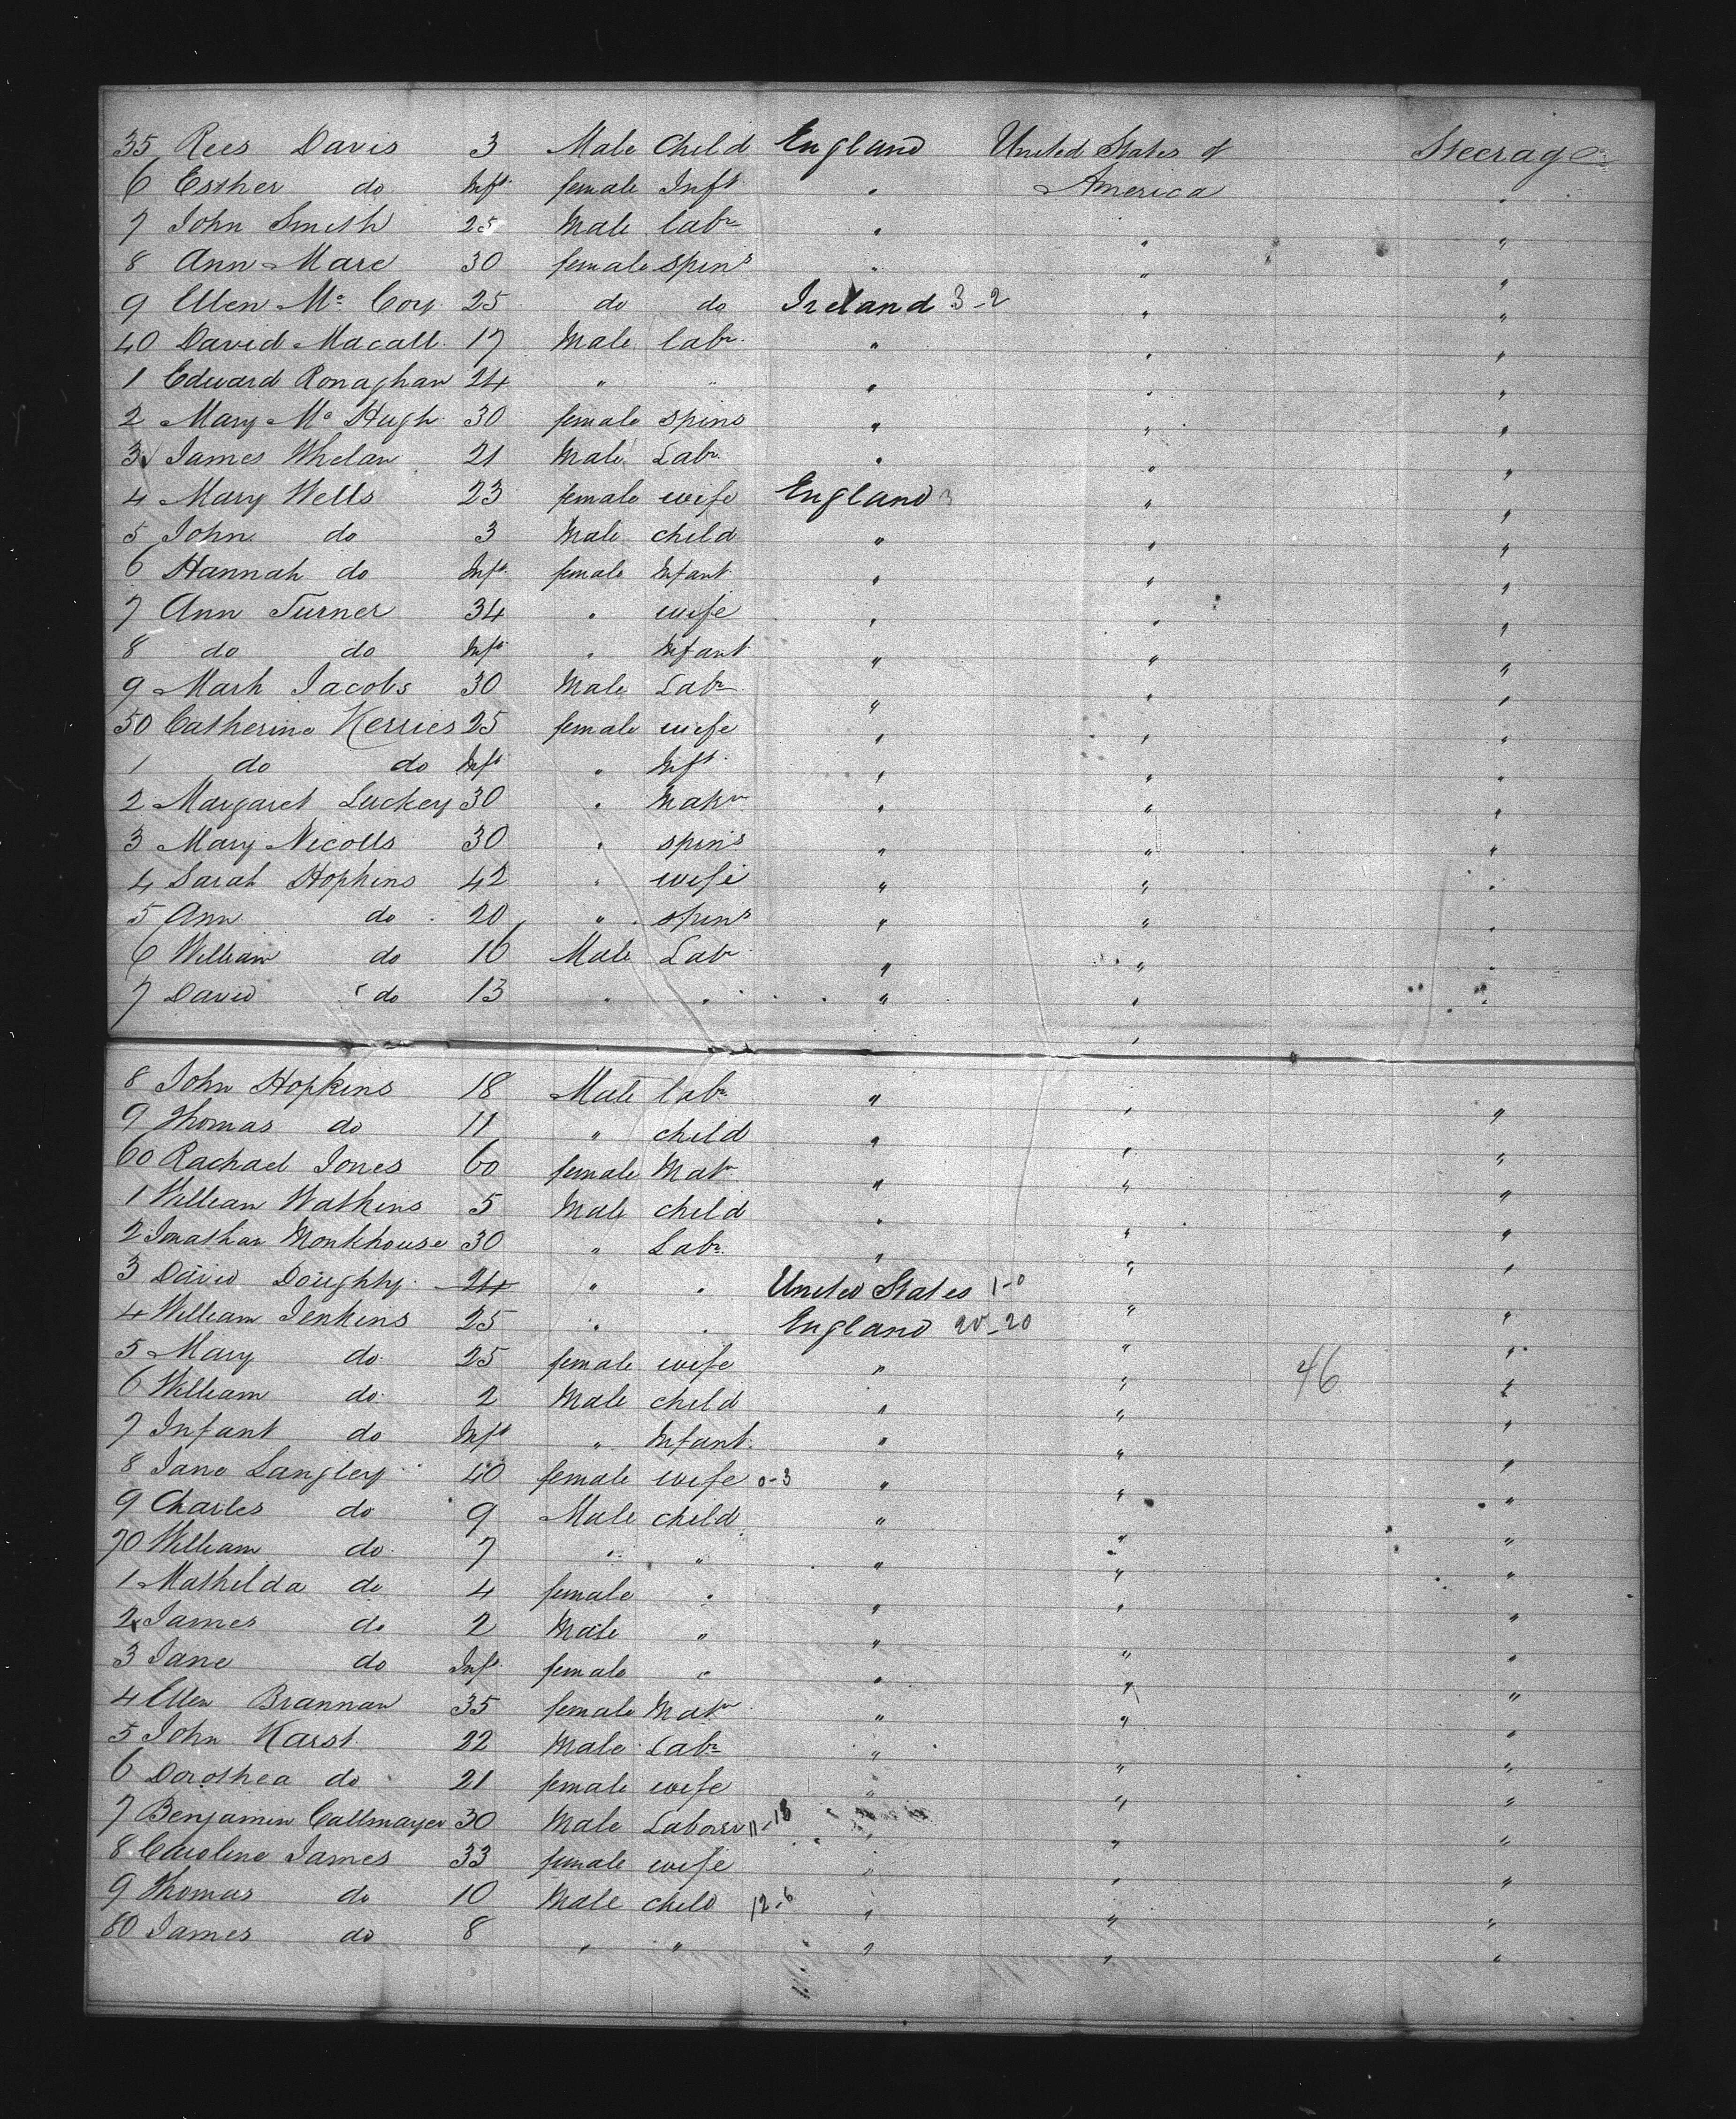 35 Rees Davis 3 Male Child England United States of Steerage
6 Esther do Inft female Inft " America "
7 John Smith 25 Male labr " " "
8 Ann Mare 30 female spins " " "
9 Ellen Mc Coy 25 do do Ireland 3-2 " "
40 David Macall 17 Male labr " " "
1 Edward Ronaghan 24 " " " " "
2 Mary Mc Hugh 30 female spins " " "
3 James Whelan 21 Male Labr " " "
4 Mary Wells 23 female wife England 3 " "
5 John do 3 Male child " " "
6 Hannah do Inft female Infant " " "
7 Ann Turner 34 " wife " " "
8 do do Inft " Infant " " "
9 Mark Jacobs 30 Male Labr " " "
50 Catherine Kerries 25 female wife " " "
1 do do Inft " Inft " " "
2 Margaret Luckey 30 " Matrn " " "
3 Mary Nicolls 30 " spins " " "
4 Sarah Hopkins 42 " wife " " "
5 Ann do 20 " spins " " "
6 William do 16 Male Labr " " "
7 David do 13 " " " " "
8 John Hopkins 18 Male labr " " "
9 Thomas do 11 " child " " "
60 Rachael Jones 60 female Matrn " " "
1 William Watkins 5 Male child " " "
2 Jonathan Monkhouse 30 " Labr " " "
3 David Doughty 24 " " United States 1-0 " "
4 William Jenkins 25 " " England 20-20 " "
5 Mary do 25 female wife " " 46 "
6 William do 2 Male child " " "
7 Infant do Inft " Infant " " "
8 Jane Langley 40 female wife 0-3 " " "
9 Charles do 9 Male child " " "
70 William do 7 " " " " "
1 Mathilda do 4 female " " " "
2 James do 2 Male " " " "
3 Jane do Inft female " " " "
4 Ellen Brannan 35 female Matrn " " "
5 John Karst 22 Male Labr " " "
6 Dorothea do 21 female wife " " "
7 Benjamin Callmayer 30 Male Laborer 11-18 " " "
8 Caroline James 33 female wife " " "
9 Thomas do 10 Male child 12-6 " " "
80 James do 8 " " " " "